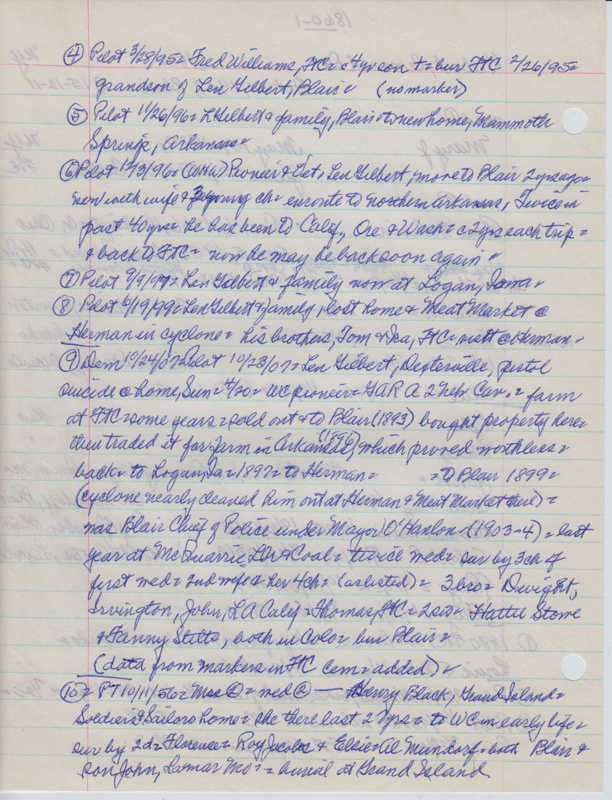 1860-1
④ Pilot 3/28/95= Fred Williams, FtC= 4yr son += bur FtC 2/26/95=
grandson of Len Gilbert, Blair= (no marker)
⑤ Pilot 11/26/96= L Gilbert & family, Blair= to new home, Mammoth
Springs, Arkansas=
⑥ Pilot Pioneer & Vet, Len Gilbert, move to Blair 2yrs ago=
now with wife & young ch= enroute to northern Arkansas, Twice in
past 40yrs he has been to Calif, Ore & Wash= 2yrs each trip=
& back to FtC= now he may be back soon again=
⑦ Pilot 9/9/97= Len Gilbert & family now at Logan, Iowa=
⑧ Pilot 6/19/99= Len Gilbert & family, lost home & Meat Market @
Herman in cyclone= his brothers, Tom & Ira, FtC= @ Herman=
⑨ Dem 10/24/07= Pilot 10/23/07= Len Gilbert, pistol
suicide @ home, Sun= WC pioneer= GAR A 2 Neb Cav.= farm
at FtC= some years= sold out & to Blair (1893) bought property here=
then traded it for farm in Arkansas, (1896) which proved worthless=
back= to Logan, Ia= 1897= to Herman= =to Blair 1899=
(cyclone nearly cleaned him out at Herman & Meat Market there)=
Blair Chief of Police under Mayor O'Hanlon (1903-4)= last
year at McQuarrie Lbr & Coal= twice med= sur by 3ch of
first med= 2nd wife & her 4ch= = 3 bro= Dwight,
Irvington, John, LA Calif= Thomas, FtC= 2 Hattie Stowe
& Fanny Stitts, both in Colo= bur Blair=
(data from markers in FtC Cem= added)=
⑩= PT 10/11/56= Mrs @= med @ — Henry Black, Grand Island=
Soldiers & Sailors home= she there last 2 yrs= to WC in early life=
sur by 2d= Florence= Roy Jacobs & Elsie= Al Mundorf= both Blair &
son John, Lamar Mo= = burial at Grand Island